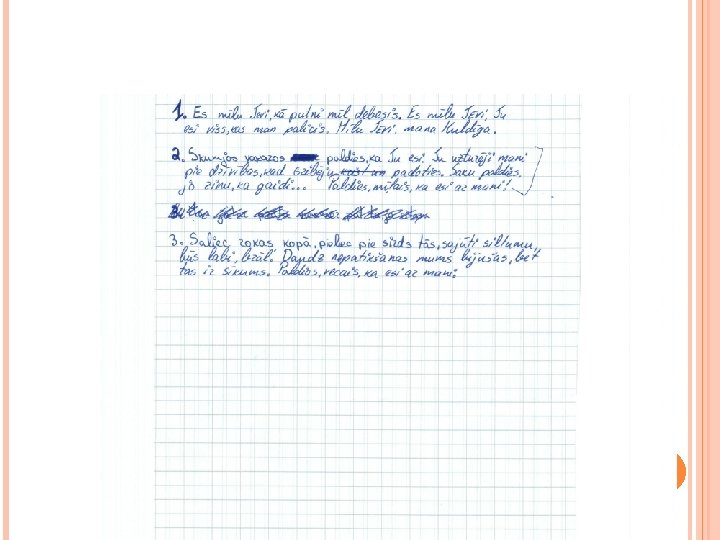 1. Es mīlu Tevi, kā putni mīl debesis. Es mīlu Tevi, Tu
esi viss, kas man palicis. Mīlu Tevi, mana Kuldīga.
2. Skumjos vakaros paldies, ka Tu esi. Tu uzturēji mani
pie dzīvības, kad gribēju padoties. Saku paldies,
jo zinu, ka gaidi... Paldies, mīļais, ka esi ar mani!
3. Saliec rokas kopā, pieliec pie sirds tās, sajūti siltumu,
būs labi, brāl! Daudz nepatikšanas mums bijušas, bet
tas ir sīkums. Paldies, vecais, ka esi ar mani!